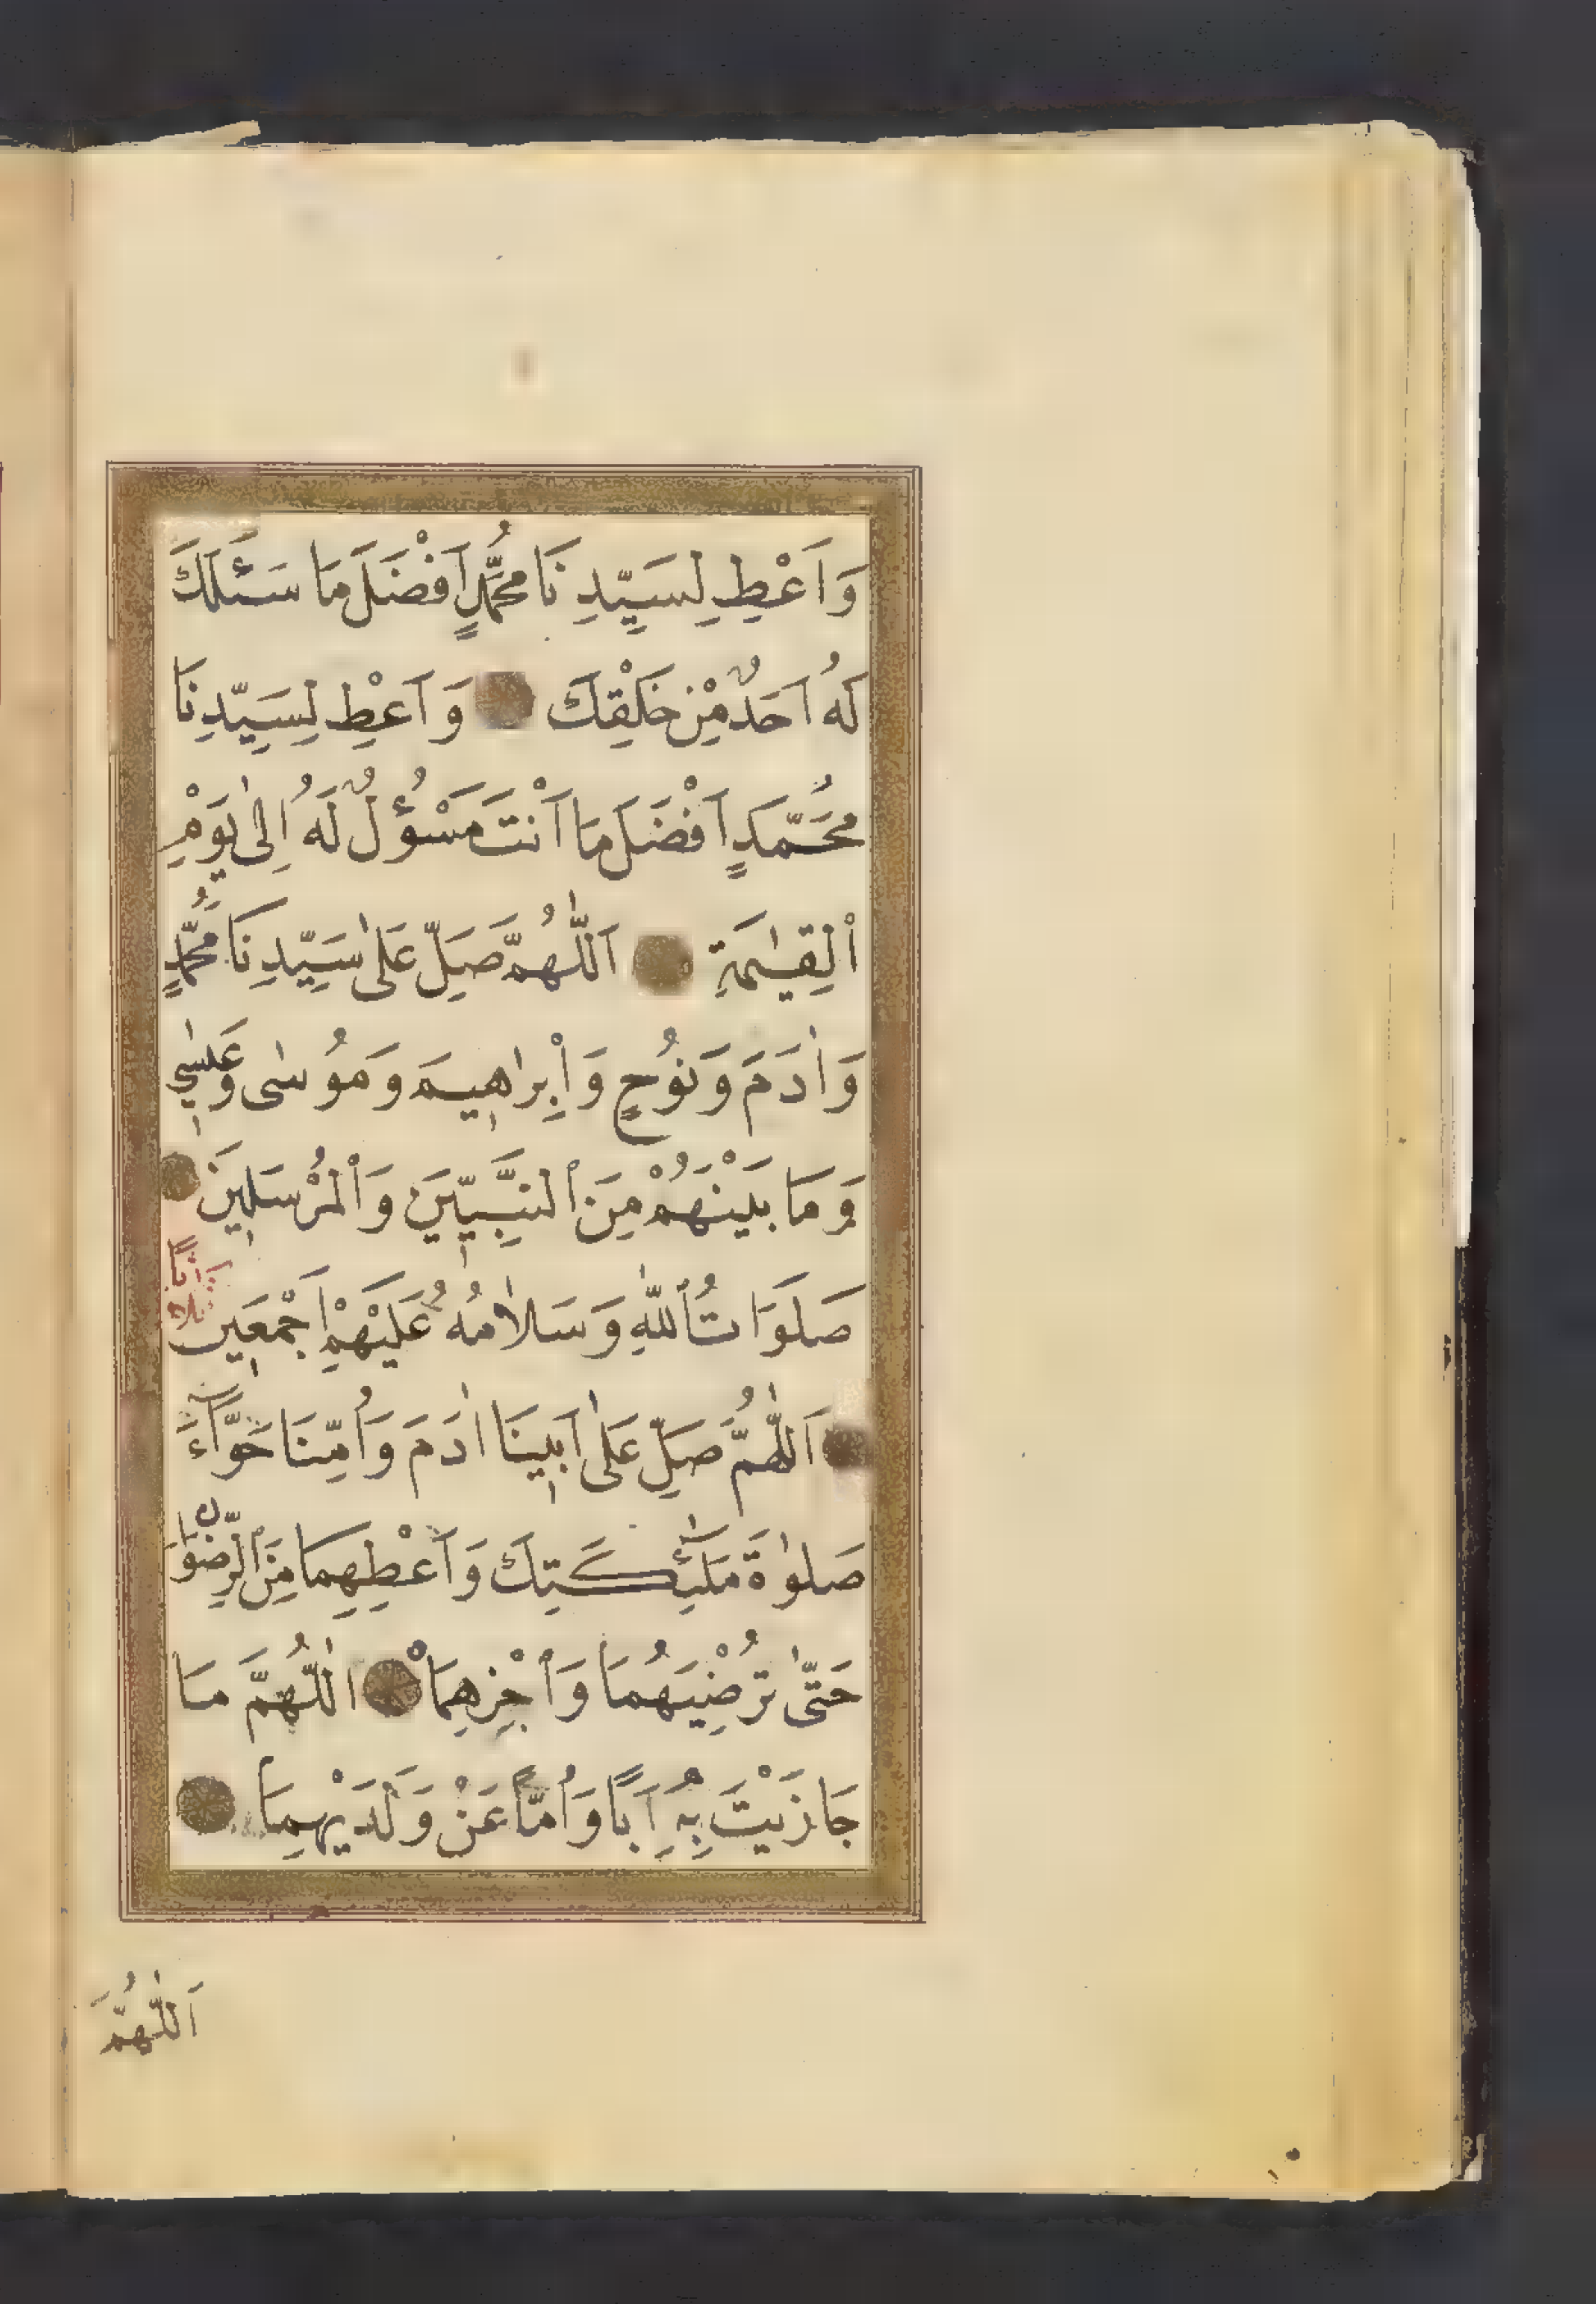 وَاَعْطِ لِسَيِّدِنَا مُحَمَّدٍ اَفْضَلَ مَا سَئَلَكَ
لَهُ اَحَدٌ مِنْ خَلْقِكَ وَاَعْطِ لِسَيِّدِنَا
مُحَمَّدٍ اَفْضَلَ مَا اَنْتَ مَسْؤُلٌ لَهُ اِلٰى يَوْمِ
الْقِيٰمَةِ اَللّٰهُمَّ صَلِّ عَلٰى سَيِّدِنَا مُحَمَّدٍ
وَاٰدَمَ وَنُوحٍ وَاِبْرَاهِيمَ وَمُوسٰى وَعِيسٰى
وَمَا بَيْنَهُمْ مِنَ النَّبِيِّينَ وَالْمُرْسَلِينَ
صَلَوَاتُ اللّٰهِ وَسَلَامُهُ عَلَيْهِمْ اَجْمَعِين
اَللّٰهُمَّ صَلِّ عَلٰى اَبِينَا اٰدَمَ وَاُمِّنَا حَوَّآءَ
صَلٰوةَ مَلٰٓئِكَتِكَ وَاَعْطِهِمَا مِنَ الرِّضْوَانِ
حَتّٰى تُرْضِيَهُمَا وَاجْزِهِمَا اللّٰهُمَّ مَا
جَازَيْتَ بِهِ اَبًا وَاُمًّا عَنْ وَلَدَيْهِمَا
اَللّٰهُمَّ